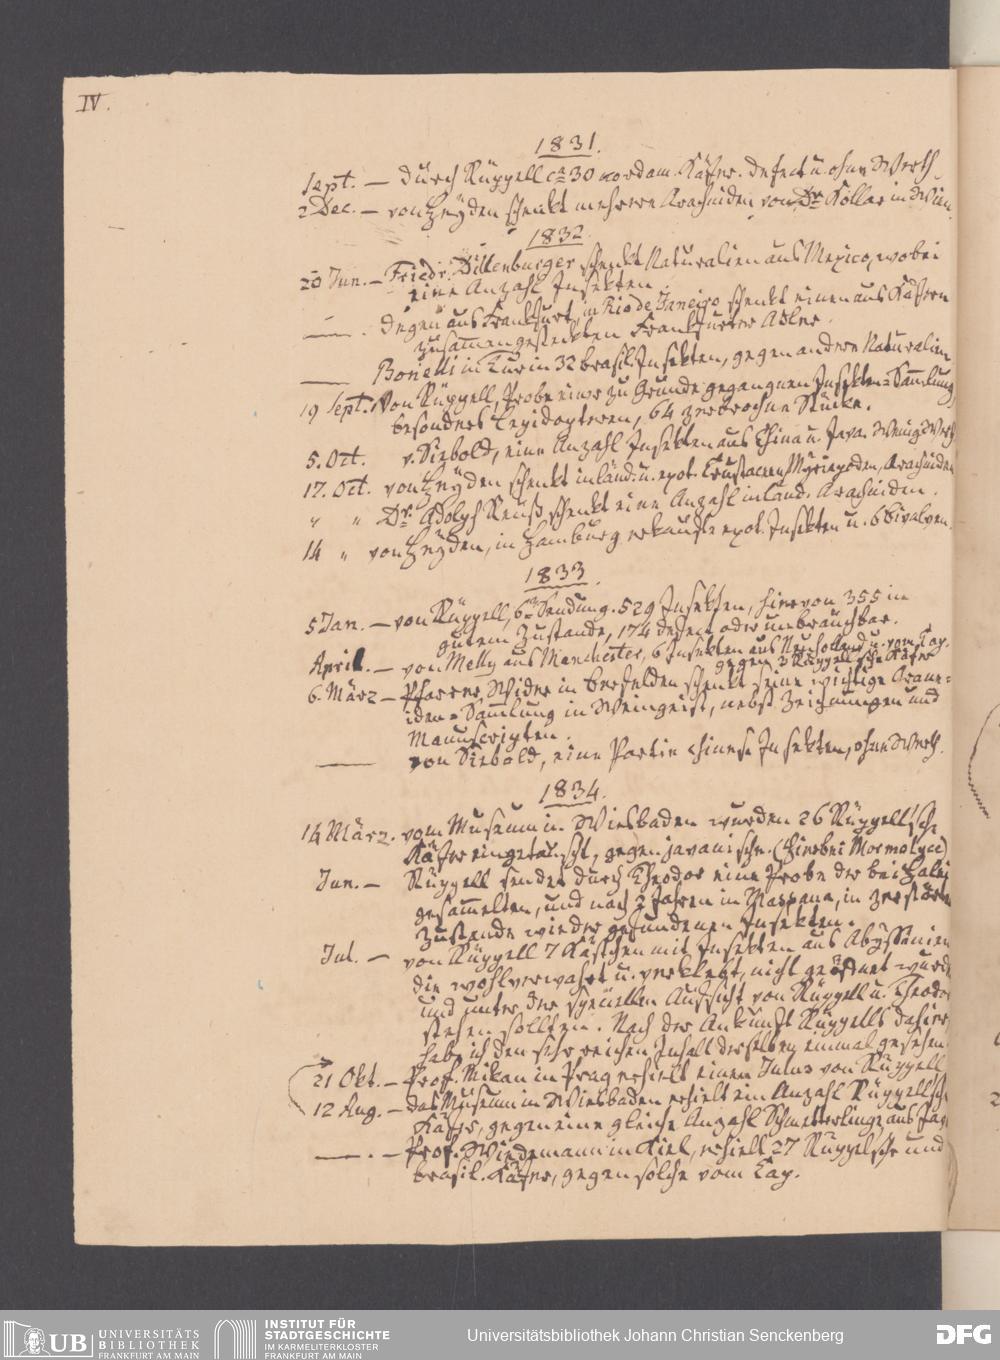 IV.
1831.
Sept. — durch Rüppell ca 30 nordam. Käfer. defect u. ohne Werth.
2 Dec. — von Heyden schenkt mehrere Arachniden von Dr. Kollar in Wien.
1832.
20 Jun. — Friedr. Dillenburger schenkt Naturalien aus Mexico, wobei
eine Anzahl Insekten.
— . Degen aus Frankfurt, in Rio de Janeiro schenkt einen aus Käfern
zusammengesteckten Frankfurter Adler.
— Bonelli in Turin 32 brasil. Insekten, gegen andere Naturalien
19 Sept. Von Rüppell, Probe einer zu Grunde gegangnen Insekten-Sammlung,
besonders Lepidopteren, 64 zerbrochne Stücke.
5. Oct. v. Siebold, eine Anzahl Insekten aus China u. Java. Wenig Werth
17. Oct. von Heyden schenkt inländ. u. exot. Crustaceen, Myriapoden, Arachniden
" " Dr. Adolph Reuß schenkt eine Anzahl inländ. Arachniden.
14 " von Heyden, in Hamburg erkaufte exot. Insekten u. 6 Bivalven.
1833.
5 Jan. — von Rüppell, 6te Sendung. 529 Insekten, hiervon 355 in
gutem Zustande, 174 defect oder unbrauchbar.
April. — von Melly aus Manchester, 6 Insekten aus Neuholland u. vom Cap.
gegen 3 Rüppell'sche Käfer
6. März — Pfarrer Wider in Beerfelden schenkt seine wichtige Arane=
iden=Sammlung in Weingeist, nebst Zeichnungen und
Manuscripten.
— von Siebold, eine Partie chines. Insekten, ohne Werth.
1834.
14 März. vom Museum in Wiesbaden wurden 26 Rüppell'sche
Käfer eingetauscht, gegen javanische. (hierbei Mormolyce)
Jun. — Rüppell sendet durch Theodor eine Probe der bei
gesammelten, und nach 2 Jahren in Massaua, in zerstörtem
Zustande wieder gefundenen Insekten.
Jul. — von Rüppell 7 Kästchen mit Insekten aus Abyssinien
die wohlverwahrt u. verklebt, nicht geöffnet wurden
und unter der speciellen Aufsicht von Rüppell u. Theodor
stehen sollten. Nach der Ankunft Rüppells dahier,
habe ich den sehr reichen Inhalt derselben einmal gesehen.
21 Okt. — Prof. Mikan in Prag erhielt einen Julus von Rüppell
12 Aug. — das Museum in Wiesbaden erhielt ein Anzahl Rüppellsche
Käfer, gegen eine gleiche Anzahl Schmetterlinge aus Java
— . — Prof. Wiedemann in Kiel, erhielt 27 Rüppelsche und
brasil. Käfer, gegen solche vom Cap.
UB UNIVERSITÄTS
BIBLIOTHEK
FRANKFURT AM MAIN
INSTITUT FÜR
STADTGESCHICHTE
IM KARMELITERKLOSTER
FRANKFURT AM MAIN
Universitätsbibliothek Johann Christian Senckenberg
DFG